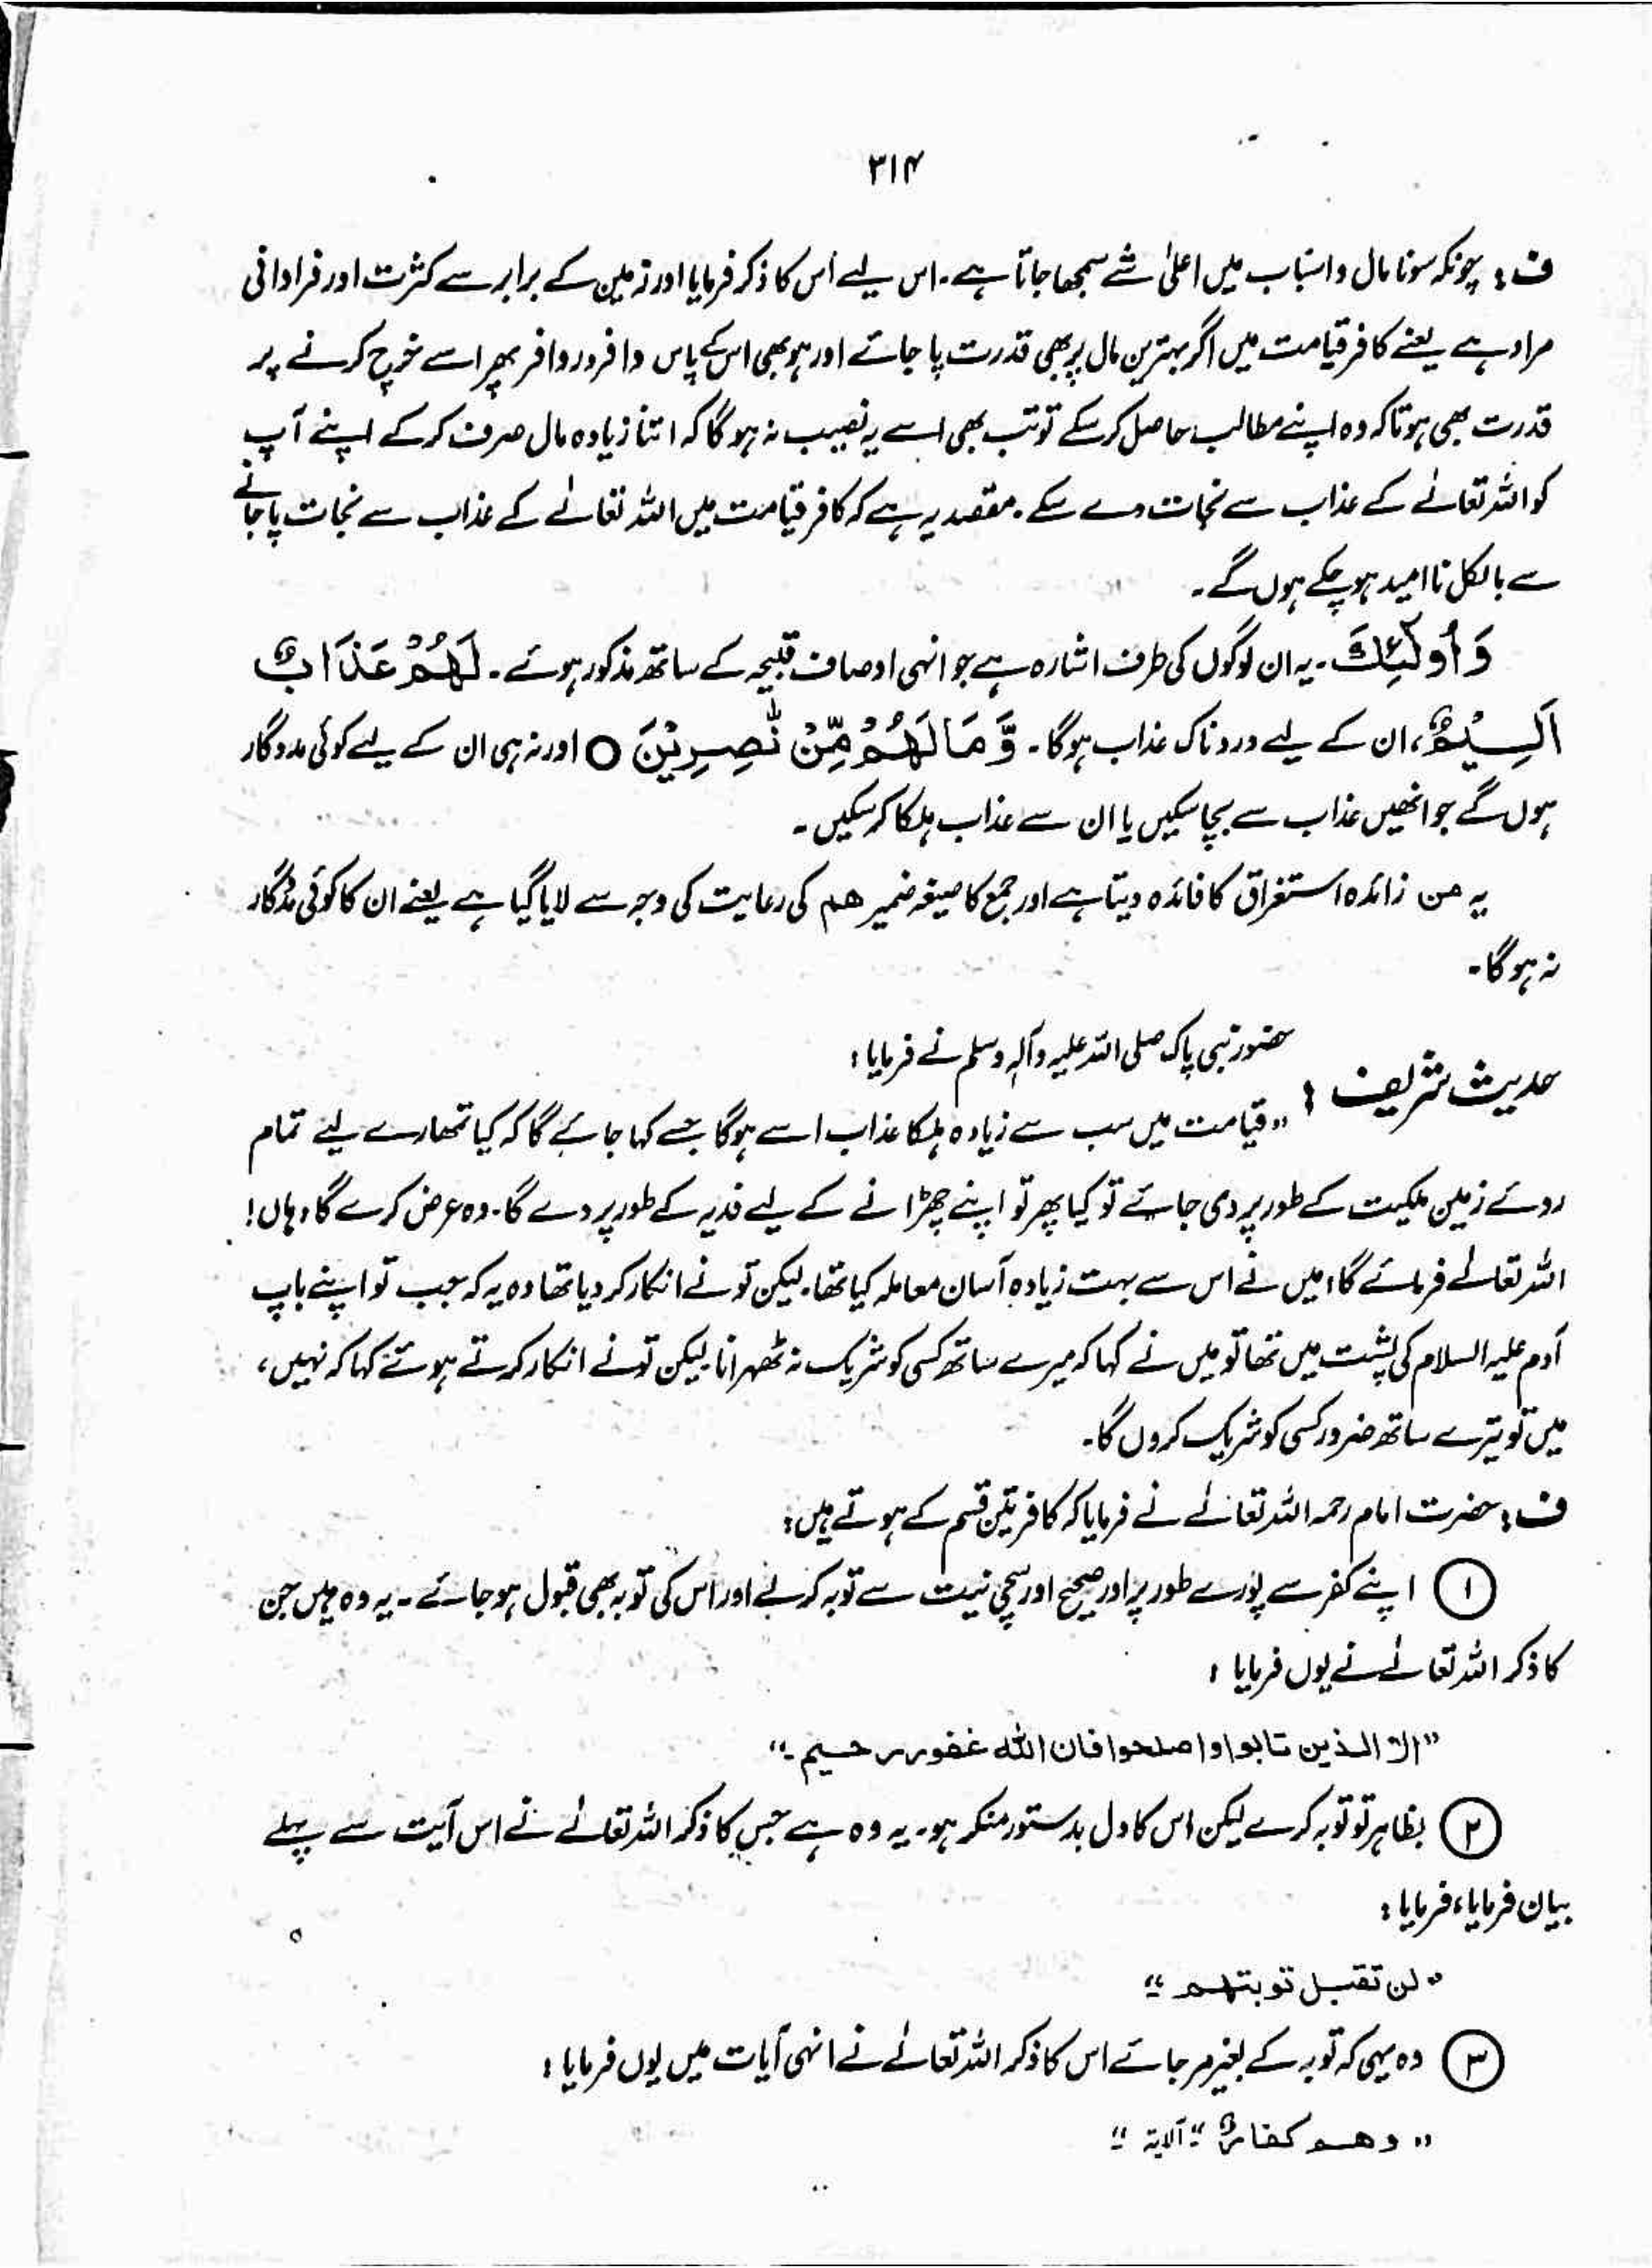 ۳۱۴
ف : چونکہ سونا مال و اسباب میں اعلیٰ شے سمجھا جاتا ہے۔ اس لیے اس کا ذکر فرمایا اور زمین کے برابر سے کثرت اور فراوانی
مراد ہے یعنے کافر قیامت میں اگر بہترین مال پر بھی قدرت پا جائے اور ہو بھی اس کے پاس وافر در وافر پھر اسے خرچ کرنے پر
قدرت بھی ہو تاکہ وہ اپنے مطالب حاصل کر سکے تو تب بھی اسے یہ نصیب نہ ہو گا کہ اتنا زیادہ مال صرف کر کے اپنے آپ
کو اللہ تعالےٰ کے عذاب سے نجات دے سکے۔ مقصد یہ ہے کہ کافر قیامت میں اللہ تعالےٰ کے عذاب سے نجات پا جانے
سے بالکل ناامید ہو چکے ہوں گے۔
وَ اُولٰٓئِكَ۔ یہ ان لوگوں کی طرف اشارہ ہے جو انہی اوصاف قبیحہ کے ساتھ مذکور ہوئے۔ لَهُمْ عَذَابٌ
اَلِيْمٌ، ان کے لیے دردناک عذاب ہوگا۔ وَّ مَا لَهُمْ مِّنْ نّٰصِرِيْنَ ○ اور نہ ہی ان کے لیے کوئی مددگار
ہوں گے جو انھیں عذاب سے بچا سکیں یا ان سے عذاب ہلکا کر سکیں۔
یہ من زائدہ استغراق کا فائدہ دیتا ہے اور جمع کا صیغہ ضمیر هم کی رعایت کی وجہ سے لایا گیا ہے یعنے ان کا کوئی مددگار
نہ ہو گا۔
حضور نبی پاک صلی اللہ علیہ وآلہٖ وسلم نے فرمایا :
حدیث شریف : "قیامت میں سب سے زیادہ ہلکا عذاب اسے ہوگا جسے کہا جائے گا کہ کیا تمھارے لیے تمام
روئے زمین ملکیت کے طور پر دی جائے تو کیا پھر تو اپنے چھڑانے کے لیے فدیہ کے طور پر دے گا۔ وہ عرض کرے گا، ہاں!
اللہ تعالےٰ فرمائے گا، میں نے اس سے بہت زیادہ آسان معاملہ کیا تھا۔ لیکن تو نے انکار کر دیا تھا وہ یہ کہ جب تو اپنے باپ
آدم علیہ السلام کی پشت میں تھا تو میں نے کہا کہ میرے ساتھ کسی کو شریک نہ ٹھہرانا لیکن تو نے انکار کرتے ہوئے کہا کہ نہیں،
میں تو تیرے ساتھ ضرور کسی کو شریک کروں گا۔
ف : حضرت امام رحمہ اللہ تعالےٰ نے فرمایا کہ کافر تین قسم کے ہوتے ہیں :
① اپنے کفر سے پورے طور پر اور صحیح اور سچی نیت سے توبہ کرلے اور اس کی توبہ بھی قبول ہو جائے۔ یہ وہ ہیں جن
کا ذکر اللہ تعالےٰ نے یوں فرمایا :
"الا الذين تابوا واصلحوا فان الله غفور رحيم۔"
② بظاہر تو توبہ کرے لیکن اس کا دل بدستور منکر ہو۔ یہ وہ ہے جس کا ذکر اللہ تعالےٰ نے اس آیت سے پہلے
بیان فرمایا، فرمایا :
"لن تقبل توبتهم"
③ وہ یہی کہ توبہ کے بغیر مر جائے اس کا ذکر اللہ تعالےٰ نے انہی آیات میں یوں فرمایا :
"وهم كفارٌ" الآیۃ"